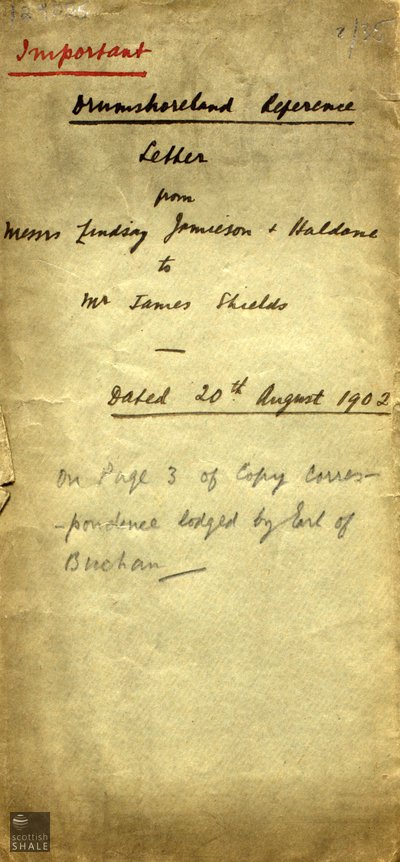 2/35
Important
Drumshoreland Reference
Letter
from
Messrs Lindsay Jamieson & Haldane
to
Mr James Shields
Dated 20th August 1902
On Page 3 of Copy Corres-
-pondence lodged by Earl of
Buchan
scottish
SHALE